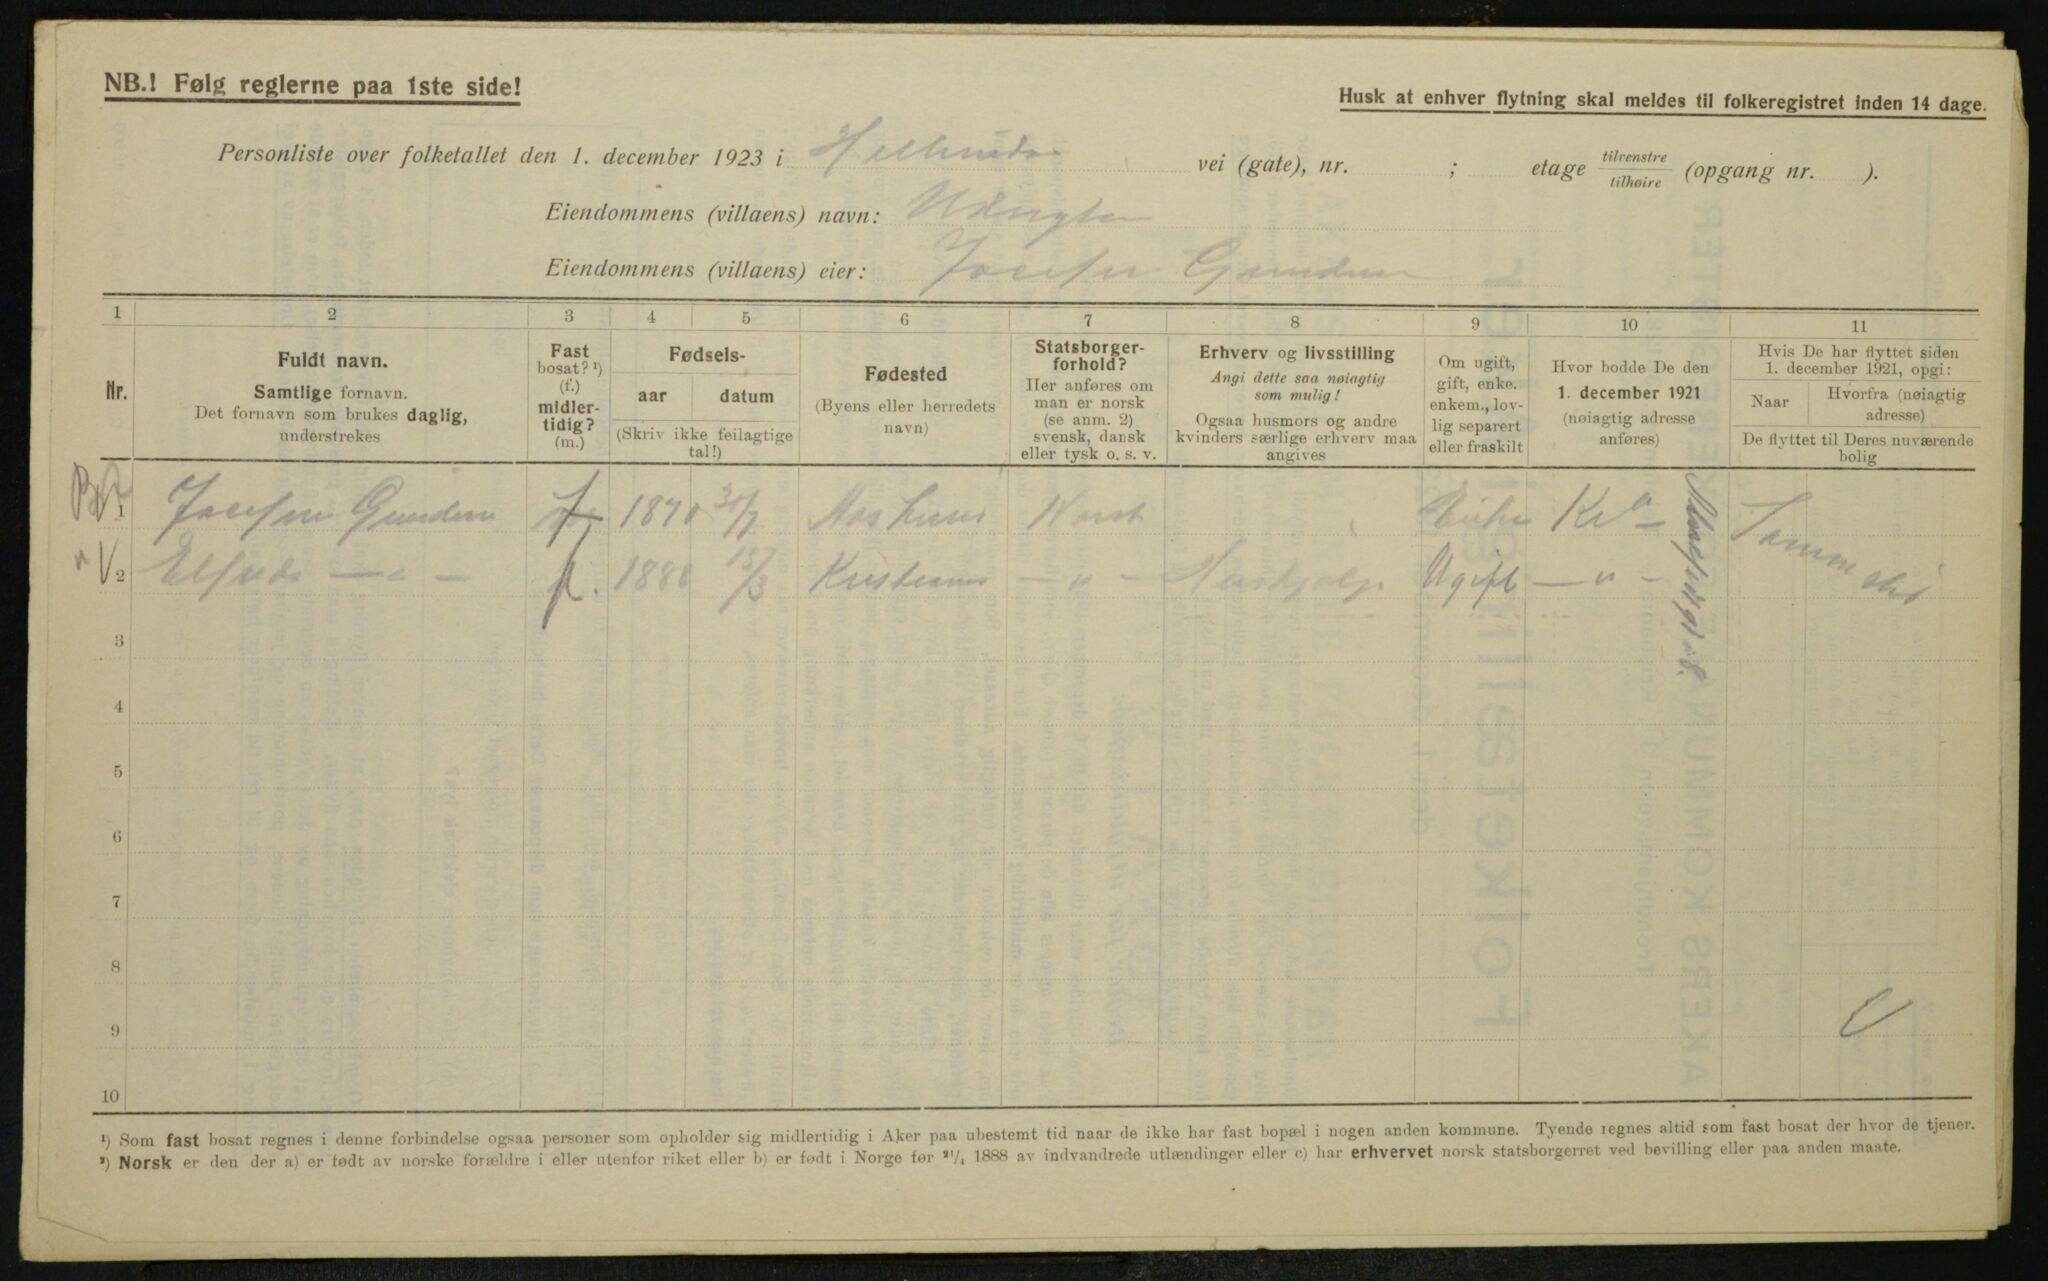 NB.! Følg reglerne paa 1ste side!
Husk at enhver flytning skal meldes til folkeregistret inden 14 dage.
Personliste over folketallet den 1. december 1923 i vei (gate), nr. ; etage tilvenstre/tilhøire (opgang nr. ).
Eiendommens (villaens) navn:
Eiendommens (villaens) eier:
1 2 3 4 5 6 7 8 9 10 11
Nr.
Fuldt navn.
Samtlige fornavn.
Det fornavn som brukes daglig,
understrekes
Fast
bosat? ¹)
(f.)
midler-
tidig?
(m.)
Fødsels-
aar datum
(Skriv ikke feilagtige
tal!)
Fødested
(Byens eller herredets
navn)
Statsborger-
forhold?
Her anføres om
man er norsk
(se anm. 2)
svensk, dansk
eller tysk o. s. v.
Erhverv og livsstilling
Angi dette saa nøiagtig
som mulig!
Ogsaa husmors og andre
kvinders særlige erhverv maa
angives
Om ugift,
gift, enke.
enkem., lov-
lig separert
eller fraskilt
Hvor bodde De den
1. december 1921
(nøiagtig adresse
anføres)
Hvis De har flyttet siden
1. december 1921, opgi:
Naar
Hvorfra (nøiagtig
adresse)
De flyttet til Deres nuværende
bolig
1 f 1870 Norsk Enke Kra
2 — " — f. 15/3 Kristiania — " — Ugift — " —
3
4
5
6
7
8
9
10
¹) Som fast bosat regnes i denne forbindelse ogsaa personer som opholder sig midlertidig i Aker paa ubestemt tid naar de ikke har fast bopæl i nogen anden kommune. Tyende regnes altid som fast bosat der hvor de tjener.
²) Norsk er den der a) er født av norske forældre i eller utenfor riket eller b) er født i Norge før ²¹/₄ 1888 av indvandrede utlændinger eller c) har erhvervet norsk statsborgerret ved bevilling eller paa anden maate.